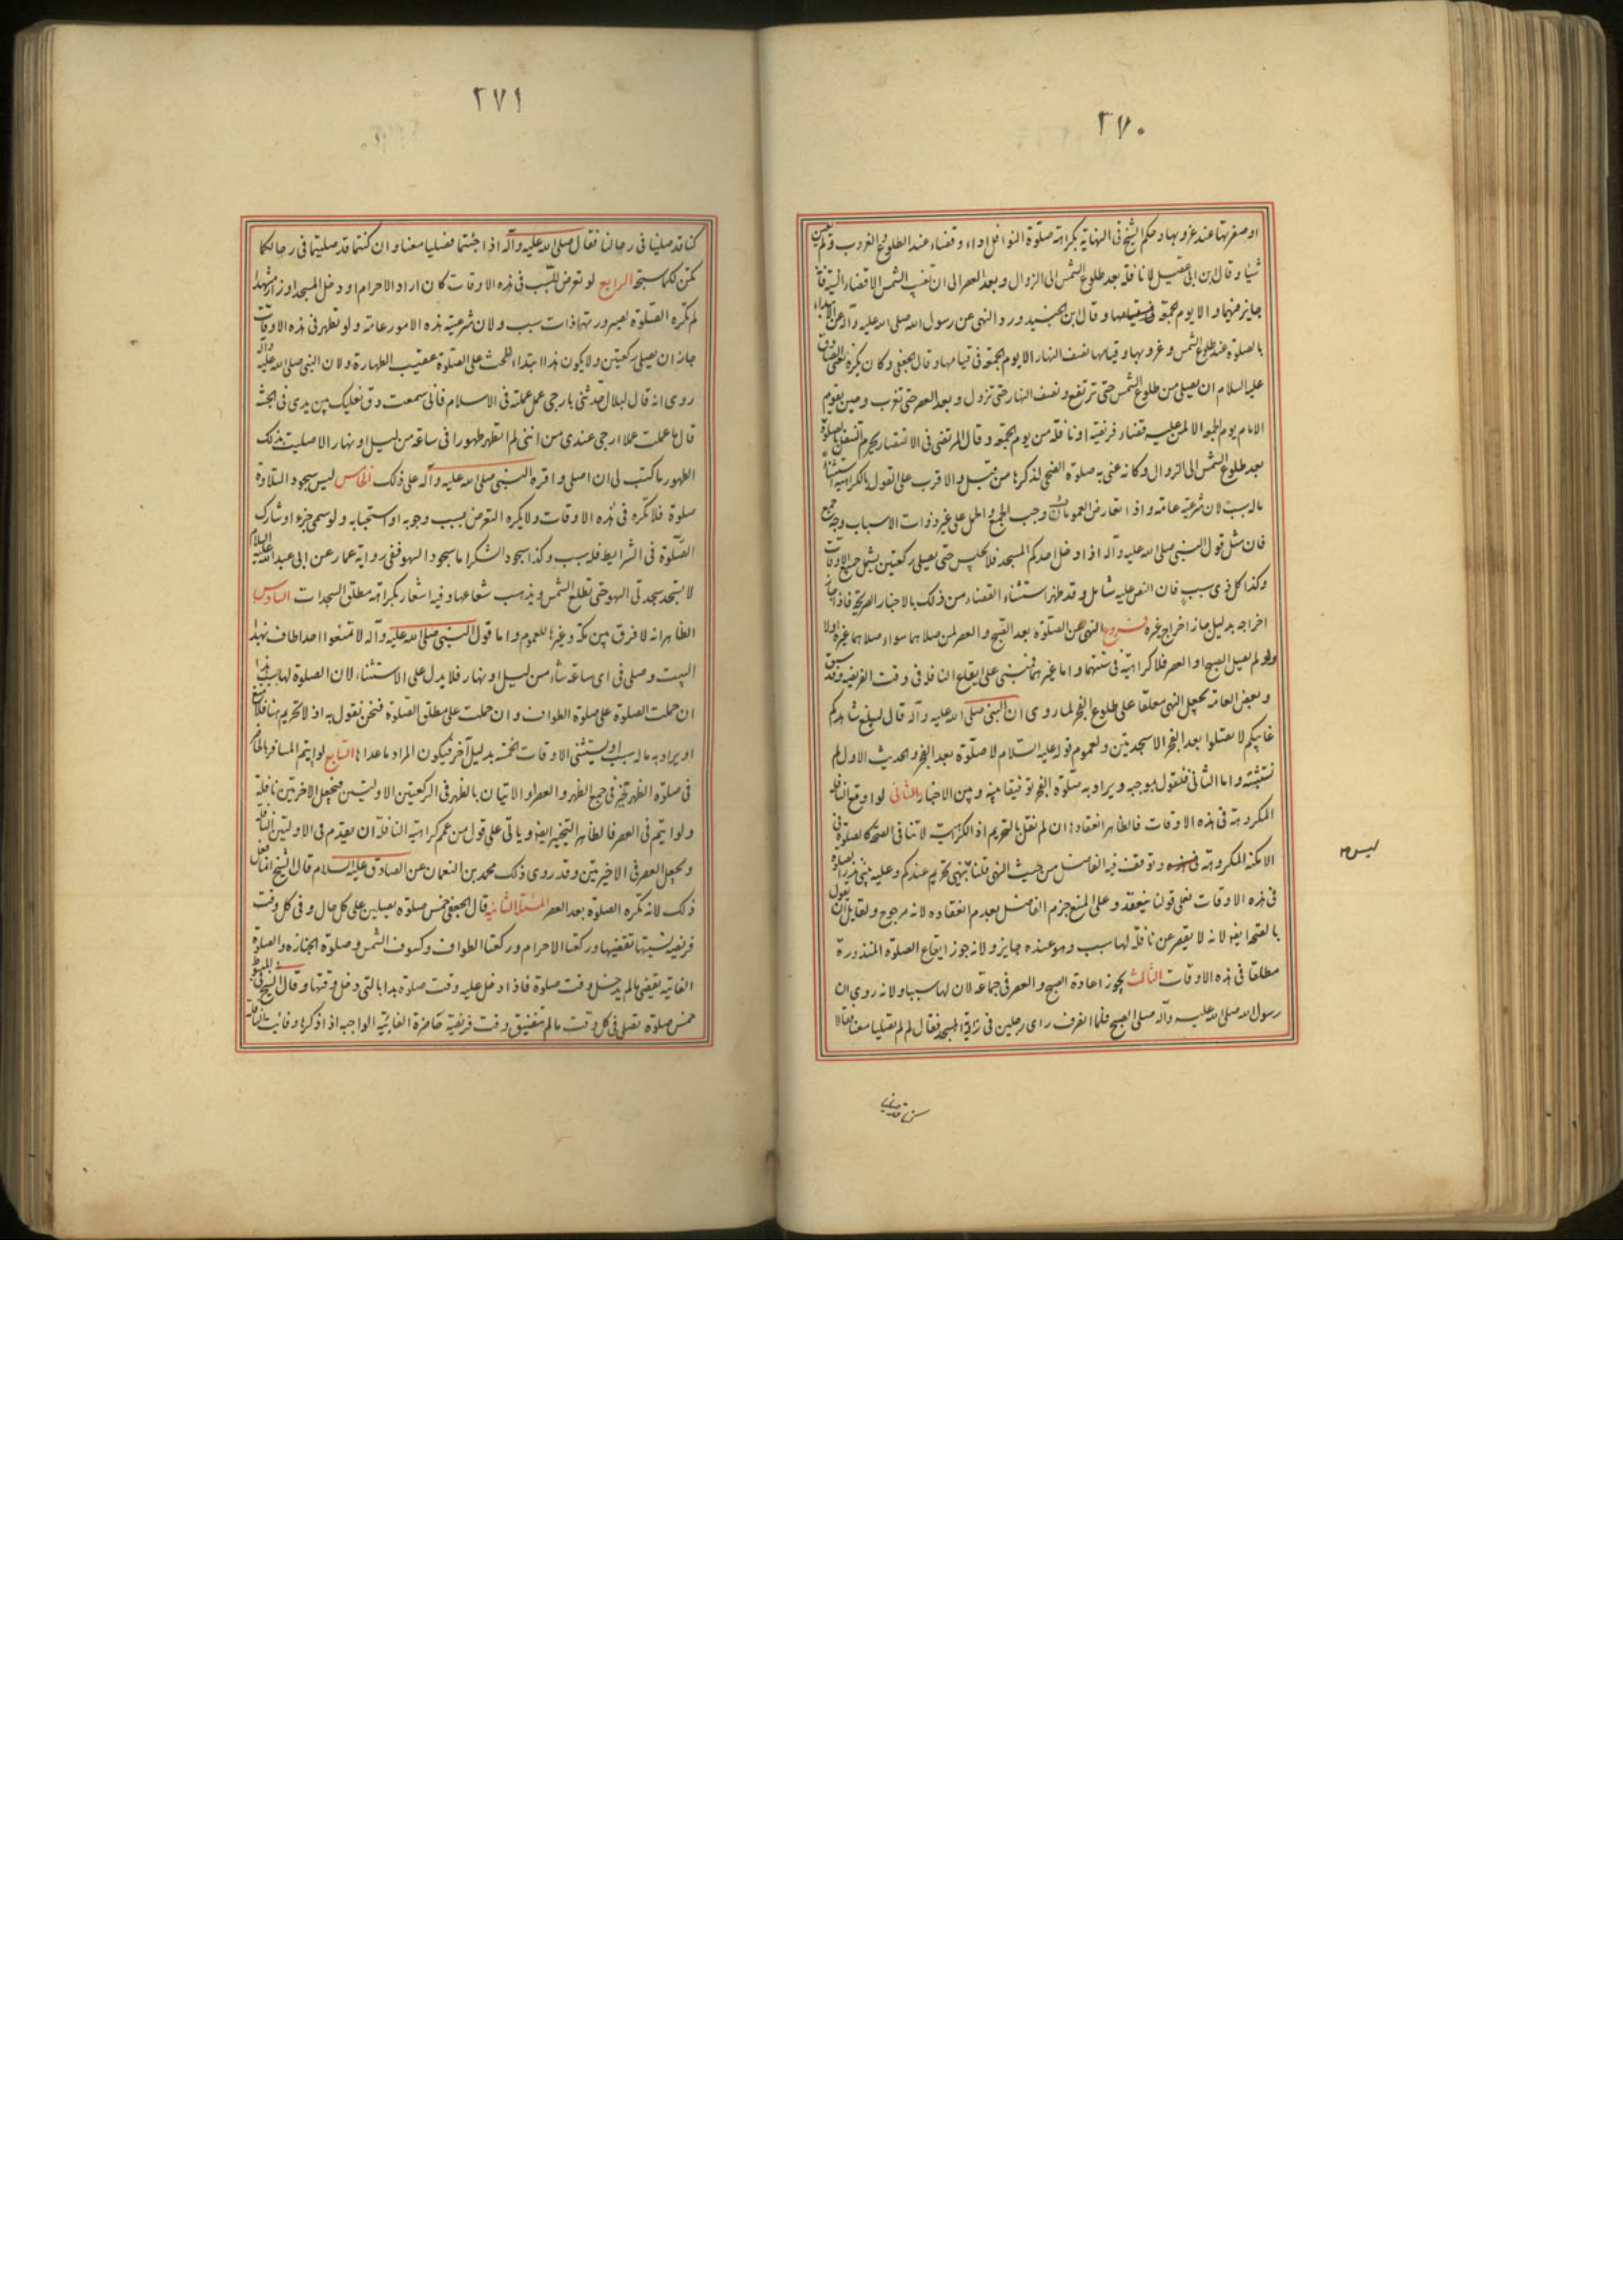 ٢٧٠
او صفرتها عند غروبها وحكم الشيخ فى النهاية بكراهة صلوة النوافل اداء وقضاء عند الطلوع والغروب ولم يستثن
شيئا وقال ابن ابى عقيل لا نافلة بعد طلوع الشمس الى الزوال وبعد العصر الى ان تغيب الشمس الا قضاء السنة فانه
جايز فيهما والا يوم الجمعة وقال ابن الجنيد ورد النهى عن رسول الله صلى الله عليه وآله عن الابتداء
بالصلوة عند طلوع الشمس وغروبها وقيامها نصف النهار الا يوم الجمعة فى قيامها وقال الجعفى وكان يكره
عليه السلام ان يصلى من طلوع الشمس حتى ترتفع ونصف النهار حتى تزول وبعد العصر حتى تغرب وحين يقوم
الامام يوم الجمعة الا لمن عليه قضاء فريضة او نافلة من يوم الجمعة وقال المرتضى فى الانتصار يحرم التنفل بالصلوة
بعد طلوع الشمس الى الزوال وكانه عنى به صلوة الضحى لذكرها من قبل والاقرب على القول بالكراهية استثناء
ماله سبب لان شرعيته عامة واذا تعارض العمومان وجب الجمع والحمل على غير ذوات الاسباب وجه جمع
فان مثل قول النبى صلى الله عليه وآله اذا دخل احدكم المسجد فلا يجلس حتى يصلى ركعتين يشمل جميع الاوقات
وكذا كل ذى سبب فان النص عليه شامل وقد ظهر استثناء القضاء من ذلك بالاخبار الصريحة فاذا جاز
اخراجه بدليل جاز اخراج غيره فروع النهى عن الصلوة بعد الصبح والعصر لمن صلاهما سواء صلاهما غيره اولا
ولو لم يصل الصبح او العصر فلا كراهية فى سنتهما واما غيرهما فمبنى على ايقاع النافلة فى وقت الفريضة وقد سبق
وبعض العامة يجعل النهى معلقا على طلوع الفجر لما روى ان النبى صلى الله عليه وآله قال ليبلغ شاهدكم
غايبكم لا تصلوا بعد الفجر الا سجدتين ولعموم قوله عليه السلام لا صلوة بعد الفجر والحديث الاول لم
نستثبته واما الثانى فنقول بموجبه ويراد به صلوة الفجر توفيقا بينه وبين الاخبار الثانى لو اوقع النافلة
المكروهة فى هذه الاوقات فالظاهر انعقادها ان لم نقل بالتحريم اذ الكراهية لا تنافى الصحة كالصلوة فى
الامكنة المكروهة وتوقف فيه الفاضل من حيث النهى قلنا ليس بنهى تحريم عندكم وعليه يبنى نذر الصلوة
فى هذه الاوقات فعلى قولنا ينعقد وعلى المنع جزم الفاضل بعدم انعقاده لانه مرجوح ولقايل ان يقول
بالصحة ايضا لانه لا يقصر عن نافلة لها سبب وهو عنده جايز ولانه جوز ايقاع الصلوة المنذورة
مطلقا فى هذه الاوقات الثالث يجوز اعادة الصبح والعصر فى جماعة لان لها سببا ولانه روى ان
رسول الله صلى الله عليه وآله صلى الصبح فلما انصرف راى رجلين فى زاوية المسجد فقال لم لم تصليا معنا فقالا
ليس
كنا قد صلينا
٢٧١
كنا قد صلينا فى رحالنا فقال صلى الله عليه وآله اذا جئتما فصليا معنا وان كنتما قد صليتما فى رحالكما
تكن لكما سبحة الرابع لو تعرض للسبب فى هذه الاوقات كان اراد الاحرام او دخل المسجد او زار مشهدا
لم تكره الصلوة لصيرورتها ذات سبب ولان شرعية هذه الامور عامة ولو تطهر فى هذه الاوقات
جاز ان يصلى ركعتين ولا يكون هذا ابتداء للحث على الصلوة عقيب الطهارة ولان النبى صلى الله عليه وآله
روى انه قال لبلال حدثنى بارجى عمل عملته فى الاسلام فانى سمعت دق نعليك بين يدى فى الجنة
قال ما عملت عملا ارجى عندى من اننى لم اتطهر طهورا فى ساعة من ليل او نهار الا صليت بذلك
الطهور ما كتب لى ان اصلى واقره النبى صلى الله عليه وآله على ذلك الخامس ليس سجود التلاوة
صلوة فلا تكره فى هذه الاوقات ولا يكره التعرض لسبب وجوبه او استحبابه ولو سمى جزء او شارك
الصلوة فى الشرايط فله سبب وكذا سجود الشكر اما سجود السهو ففى رواية عمار عن ابى عبد الله عليه السلام
لا تسجد سجدتى السهو حتى تطلع الشمس ويذهب شعاعها وفيه اشعار بكراهة مطلق السجدات السادس
الظاهر انه لا فرق بين مكة وغيرها للعموم واما قول النبى صلى الله عليه وآله لا تمنعوا احدا طاف بهذا
البيت وصلى فى اى ساعة شاء من ليل او نهار فلا يدل على الاستثناء لان الصلوة لها سبب هذا
ان حملت الصلوة على صلوة الطواف وان حملت على مطلق الصلوة فنحن نقول به اذ لا تحريم هنا فلا منع
او يراد به ماله سبب او يستثنى الاوقات الخمسة بدليل آخر فيكون المراد ما عداها السابع لو ايتم المسافر بالحاضر
فى صلوة الظهر تخير فى جمع الظهر والعصر او الاتيان بالظهر فى الركعتين الاوليين فيجعل الاخرتين نافلة
ولو ايتم فى العصر فالظاهر التخيير ايضا وياتى على قول من عمم كراهية النافلة ان يقدم فى الاوليين النافلة
ويجعل العصر فى الاخيرتين وقد روى ذلك محمد بن النعمان عن الصادق عليه السلام قال الشيخ انما فعل
ذلك لانه تكره الصلوة بعد العصر المسئلة الثانية قال الجعفى خمس صلوة يصلين على كل حال وفى كل وقت
فريضة نسيتها تقضيها وركعتا الاحرام وركعتا الطواف وكسوف الشمس وصلوة الجنازة والصلوة
الفايتة تقضى مالم يدخل وقت صلوة فاذا دخل عليه وقت صلوة بدا بالتى دخل وقتها وقال الشيخ فى المبسوط
خمس صلوة تصلى فى كل وقت مالم تتضيق وقت فريضة حاضرة الفايتة الواجبة اذا ذكرها وفايت النافلة